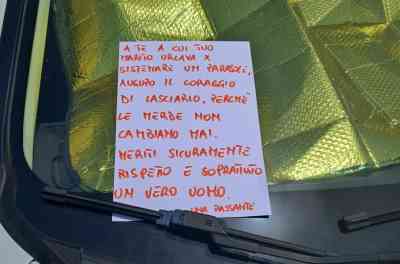 A TE A CUI TUO
MARITO URLAVA X
SISTEMARE UM PARASOLE,
AUGURO IL CORAGGIO
DI LASCIARLO, PERCHÈ
LE MERDE NON
CAMBIANO MAI.
MERITI SICURAMENTE
RISPETTO E SOPRATTUTTO
UM VERO UOMO.
UNA PASSANTE